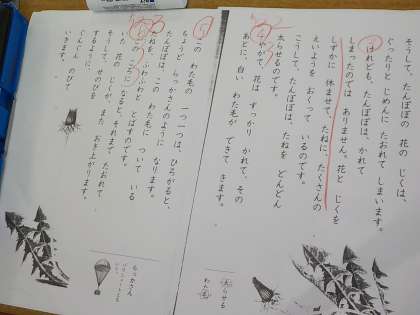 そうして、たんぽぽの 花の じくは、
ぐったりと じめんに たおれて しまいます。
けれども、たんぽぽは、かれて
しまったのでは ありません。花と じくを
しずかに 休ませて、たねに、たくさんの
えいようを おくって いるのです。
こうして、たんぽぽは、たねを どんどん
太らせるのです。
やがて、花は すっかり かれて、その
あとに、白い わた毛が できて きます。
太らせる
わた毛
5
この わた毛の 一つ一つは、ひろがると、
ちょうど らっかさんのように なります。
たんぽぽは、この わた毛に ついて いる
たねを、ふわふわと とばすのです。
この ころに なると、それまで たおれて
いた 花の じくが、また おき上がります。
そうして、せのびを
するように、
ぐんぐん のびて
いきます。
らっかさん